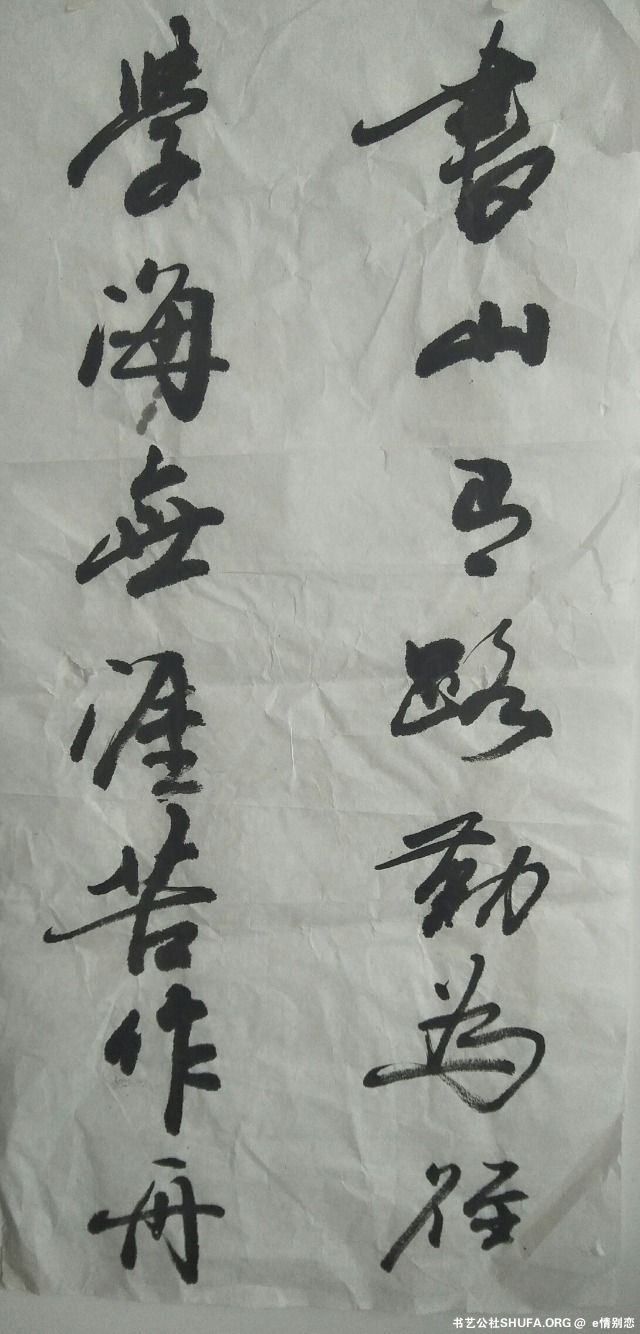 書山有路勤為徑
學海無涯苦作舟
书艺公社SHUFA.ORG @ e情别恋